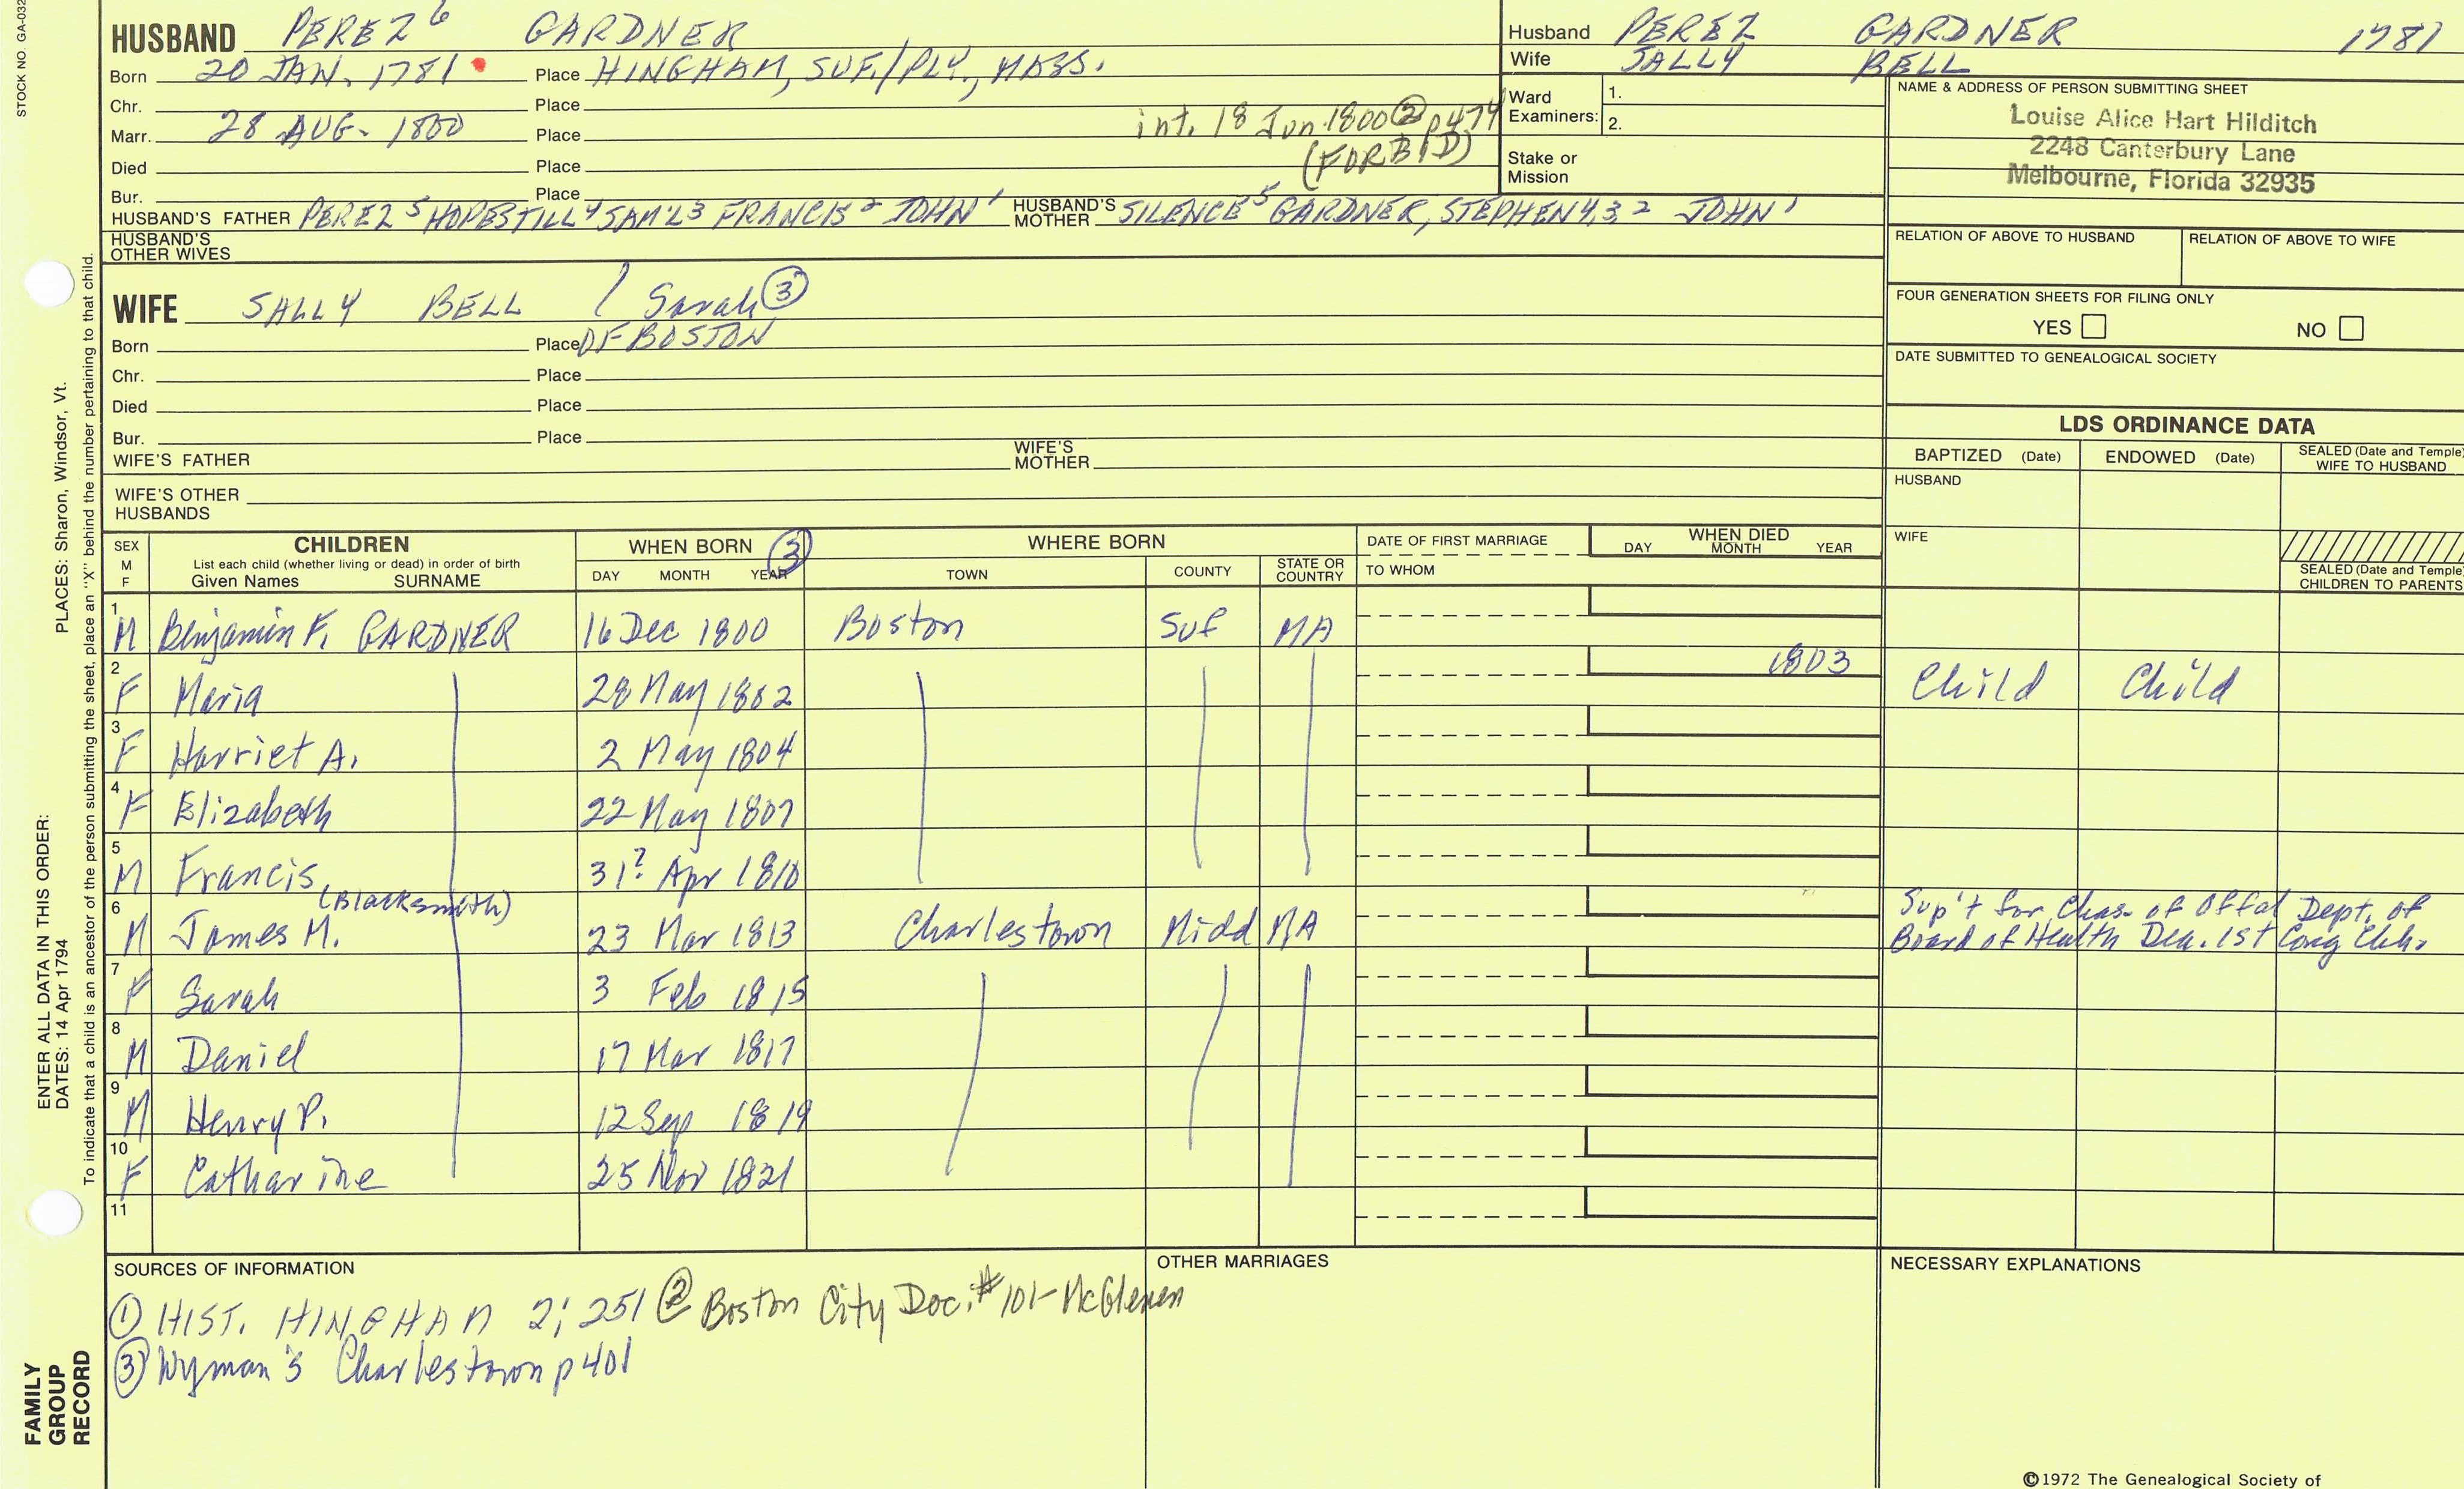 STOCK NO. GA-032
HUSBAND PEREZ 6 GARDNER
Born 20 JAN. 1781 Place HINGHAM, SUF./PLY., MASS.
Chr. Place
Marr. 28 AUG. 1800 Place int. 18 Jun 1800 ② p474
(FORBID)
Died Place
Bur. Place
HUSBAND'S FATHER PEREZ 5 HOPESTILL 4 SAM'L 3 FRANCIS 2 JOHN 1 HUSBAND'S MOTHER SILENCE 5 GARDNER, STEPHEN 4,3,2 JOHN 1
HUSBAND'S OTHER WIVES
WIFE SALLY BELL / Sarah ③
Born Place OF BOSTON
Chr. Place
Died Place
Bur. Place
WIFE'S FATHER WIFE'S MOTHER
WIFE'S OTHER HUSBANDS
Husband PEREZ GARDNER 1781
Wife SALLY BELL
Ward Examiners: 1.
2.
Stake or Mission
NAME & ADDRESS OF PERSON SUBMITTING SHEET
Louise Alice Hart Hilditch
2248 Canterbury Lane
Melbourne, Florida 32935
RELATION OF ABOVE TO HUSBAND RELATION OF ABOVE TO WIFE
FOUR GENERATION SHEETS FOR FILING ONLY
YES NO
DATE SUBMITTED TO GENEALOGICAL SOCIETY
LDS ORDINANCE DATA
BAPTIZED (Date) ENDOWED (Date) SEALED (Date and Temple) WIFE TO HUSBAND
HUSBAND
WIFE
SEALED (Date and Temple) CHILDREN TO PARENTS
SEX M F CHILDREN WHEN BORN ③ WHERE BORN DATE OF FIRST MARRIAGE WHEN DIED
List each child (whether living or dead) in order of birth
Given Names SURNAME DAY MONTH YEAR TOWN COUNTY STATE OR COUNTRY TO WHOM DAY MONTH YEAR
1 M Benjamin F. GARDNER 16 Dec 1800 Boston Suf MA
2 F Maria 28 May 1802 1803 Child Child
3 F Harriet A. 2 May 1804
4 F Elizabeth 22 May 1807
5 M Francis 31? Apr 1810
(Blacksmith)
6 M James M. 23 Mar 1813 Charlestown Midd MA Sup't for Chas. of Offal Dept. of
Board of Health Dea. 1st Cong Chh.
7 F Sarah 3 Feb 1815
8 M Daniel 17 Mar 1817
9 M Henry P. 12 Sep 1819
10 F Catharine 25 Nov 1821
11
SOURCES OF INFORMATION
① HIST. HINGHAM 2; 251 ② Boston City Doc. #101-McGlenen
③ Wyman's Charlestown p401
OTHER MARRIAGES
NECESSARY EXPLANATIONS
©1972 The Genealogical Society of
PLACES: Sharon, Windsor, Vt.
ENTER ALL DATA IN THIS ORDER:
DATES: 14 Apr 1794
To indicate that a child is an ancestor of the person submitting the sheet, place an "X" behind the number pertaining to that child.
FAMILY GROUP RECORD